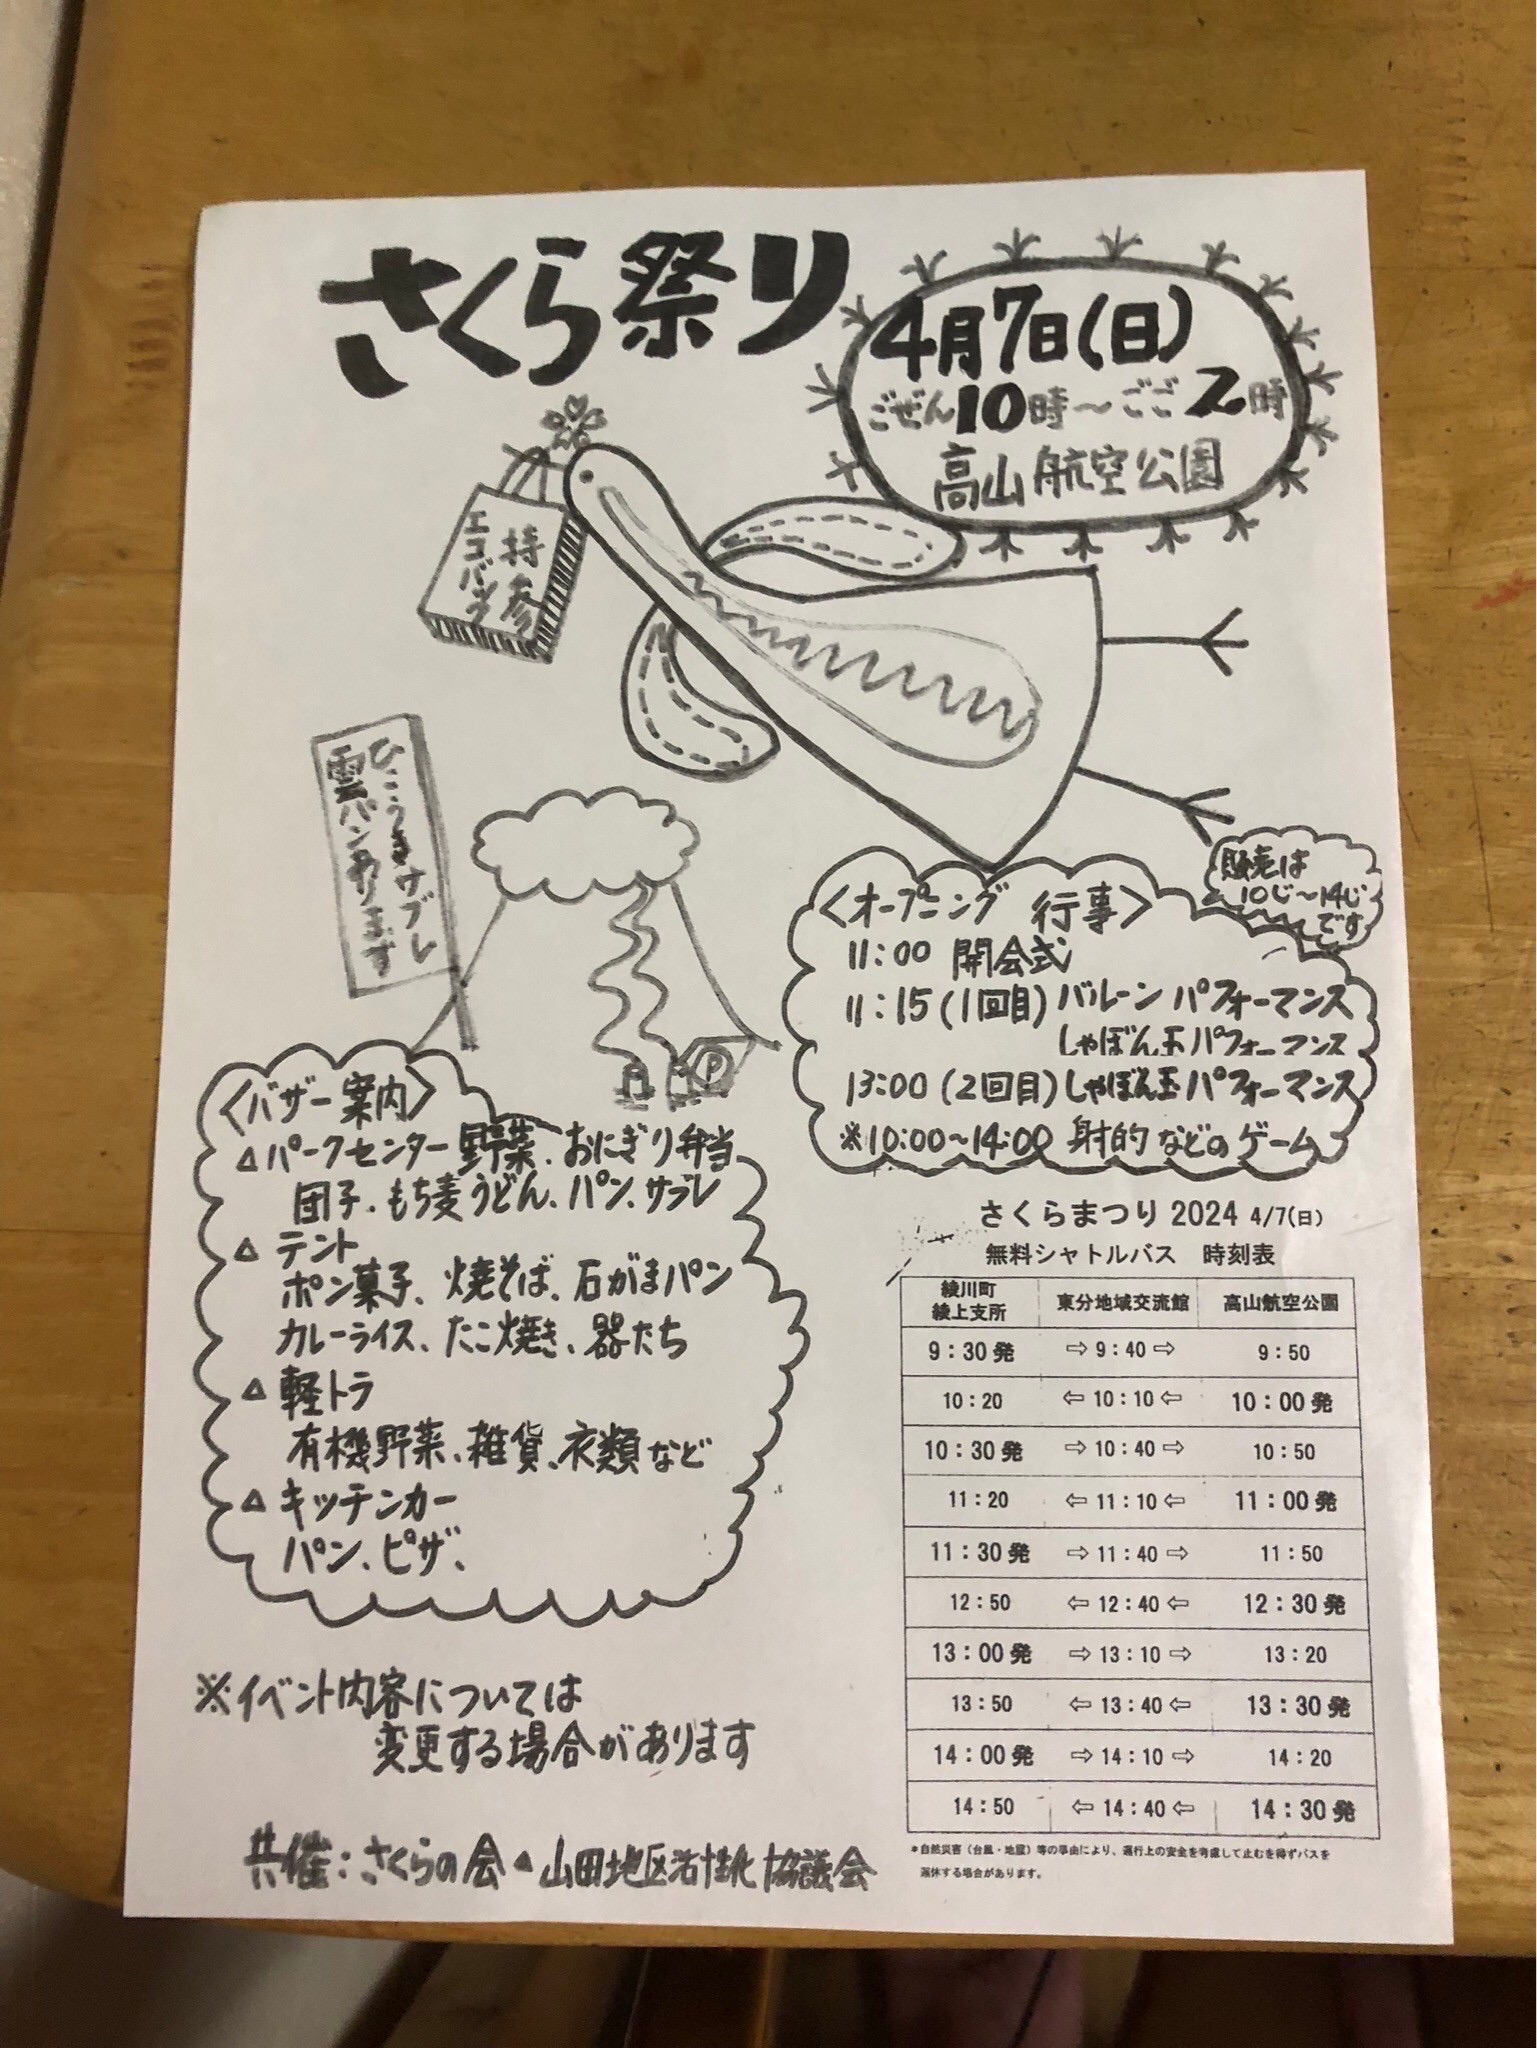 さくら祭り
4月7日(日)
ごぜん10時～ごご2時
高山航空公園
持参
エコバック
ひこうまサブレ
雲パンあります
販売は
10じ～14じ
です
<オープニング 行事>
11:00 開会式
11:15(1回目)バルーン パフォーマンス
しゃぼん玉パフォーマンス
13:00(2回目)しゃぼん玉パフォーマンス
※10:00～14:00 射的などのゲーム
P
<バザー案内>
△パークセンター 野菜、おにぎり弁当
団子、もち麦うどん、パン、サブレ
△テント
ポン菓子、焼そば、石がまパン
カレーライス、たこ焼き、器たち
△軽トラ
有機野菜、雑貨、衣類など
△キッチンカー
パン、ピザ、
※イベント内容については
変更する場合があります
共催:さくらの会▲山田地区活性化協議会
さくらまつり 2024 4/7(日)
無料シャトルバス 時刻表
綾川町
綾上支所 東分地域交流館 高山航空公園
9:30発 ⇨ 9:40 ⇨ 9:50
10:20 ⇦ 10:10 ⇦ 10:00発
10:30発 ⇨ 10:40 ⇨ 10:50
11:20 ⇦ 11:10 ⇦ 11:00発
11:30発 ⇨ 11:40 ⇨ 11:50
12:50 ⇦ 12:40 ⇦ 12:30発
13:00発 ⇨ 13:10 ⇨ 13:20
13:50 ⇦ 13:40 ⇦ 13:30発
14:00発 ⇨ 14:10 ⇨ 14:20
14:50 ⇦ 14:40 ⇦ 14:30発
*自然災害(台風・地震)等の事由により、運行上の安全を考慮して止むを得ずバスを
運休する場合があります。